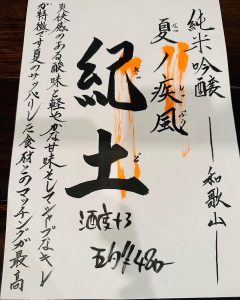 純米吟醸 ―和歌山―
夏ノ疾風
紀土
きっど
酒度+3
480-
爽快感のある酸味と軽やかな甘味そしてシャープなキレ
が特徴です夏のサッパリした食材とのマッチングが最高